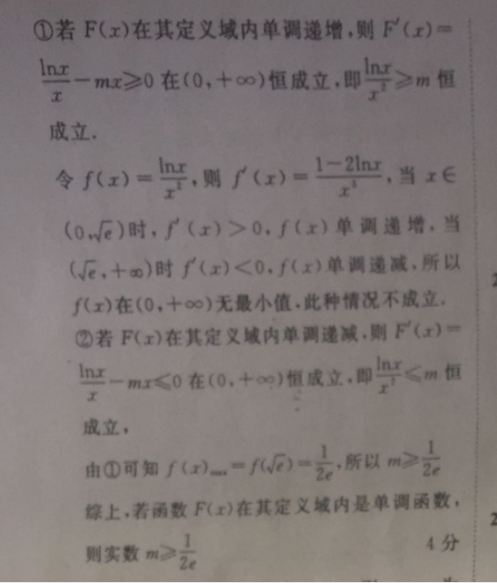 ①若 F(x)在其定义域内单调递增,则 F′(x)=
lnx/x−mx≥0 在(0,+∞)恒成立,即lnx/x²≥m 恒
成立.
令 f(x)=lnx/x²,则 f′(x)=(1−2lnx)/x³,当 x∈
(0,√e)时,f′(x)>0,f(x)单调递增,当
(√e,+∞)时 f′(x)<0,f(x)单调递减,所以
f(x)在(0,+∞)无最小值,此种情况不成立.
②若 F(x)在其定义域内单调递减,则 F′(x)=
lnx/x−mx≤0 在(0,+∞)恒成立,即lnx/x²≤m 恒
成立,
由①可知 f(x)max=f(√e)=1/2e,所以 m≥1/2e
综上,若函数 F(x)在其定义域内是单调函数,
则实数 m≥1/2e 4分